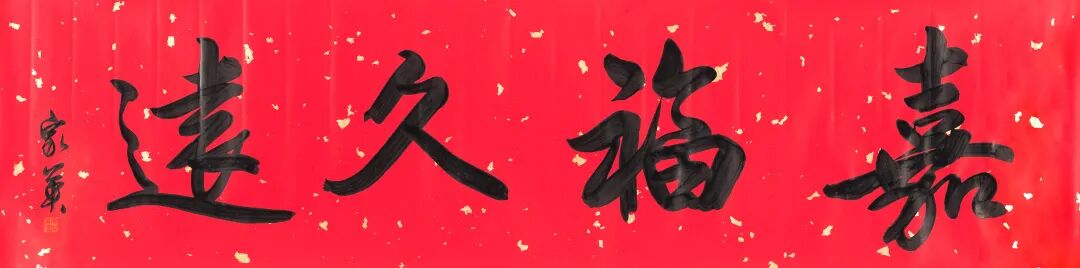 嘉福久遠
家華